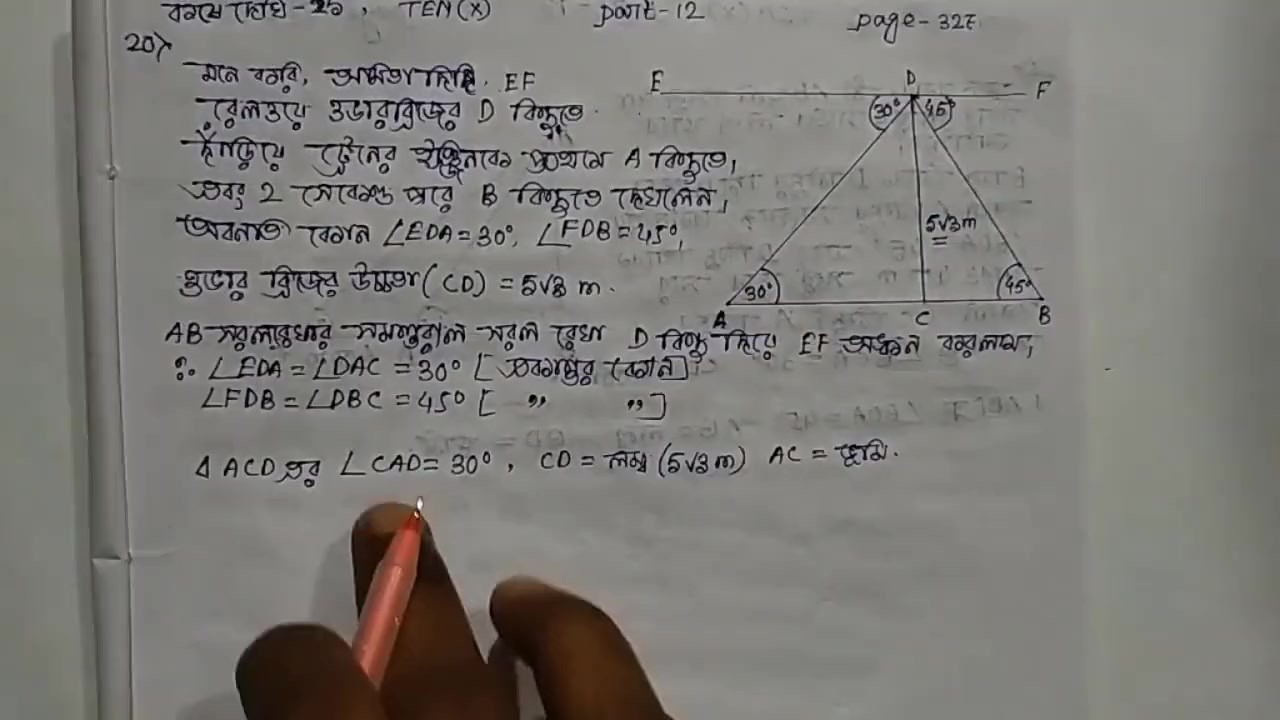 কষে দেখি - , TEN (X) part-12 page-327
20>
মনে করি, অমিতা দিদি EF
রেলওয়ে ওভারব্রিজের D বিন্দুতে
দাঁড়িয়ে ট্রেনের ইঞ্জিনকে প্রথমে A বিন্দুতে,
এবং 2 সেকেন্ড পরে B বিন্দুতে দেখলেন,
অবনতি কোন ∠EDA = 30°, ∠FDB = 45°,
ওভার ব্রিজের উচ্চতা (CD) = 5√3 m.
AB সরলরেখার সমান্তরাল সরল রেখা D বিন্দু দিয়ে EF অঙ্কন করলাম,
∴ ∠EDA = ∠DAC = 30° [একান্তর কোন]
∠FDB = ∠DBC = 45° [ ,, ,, ]
Δ ACD এর ∠CAD = 30°, CD = লম্ব (5√3 m) AC = ভূমি.
E D F
30° 45°
5√3 m
30° 45°
A C B